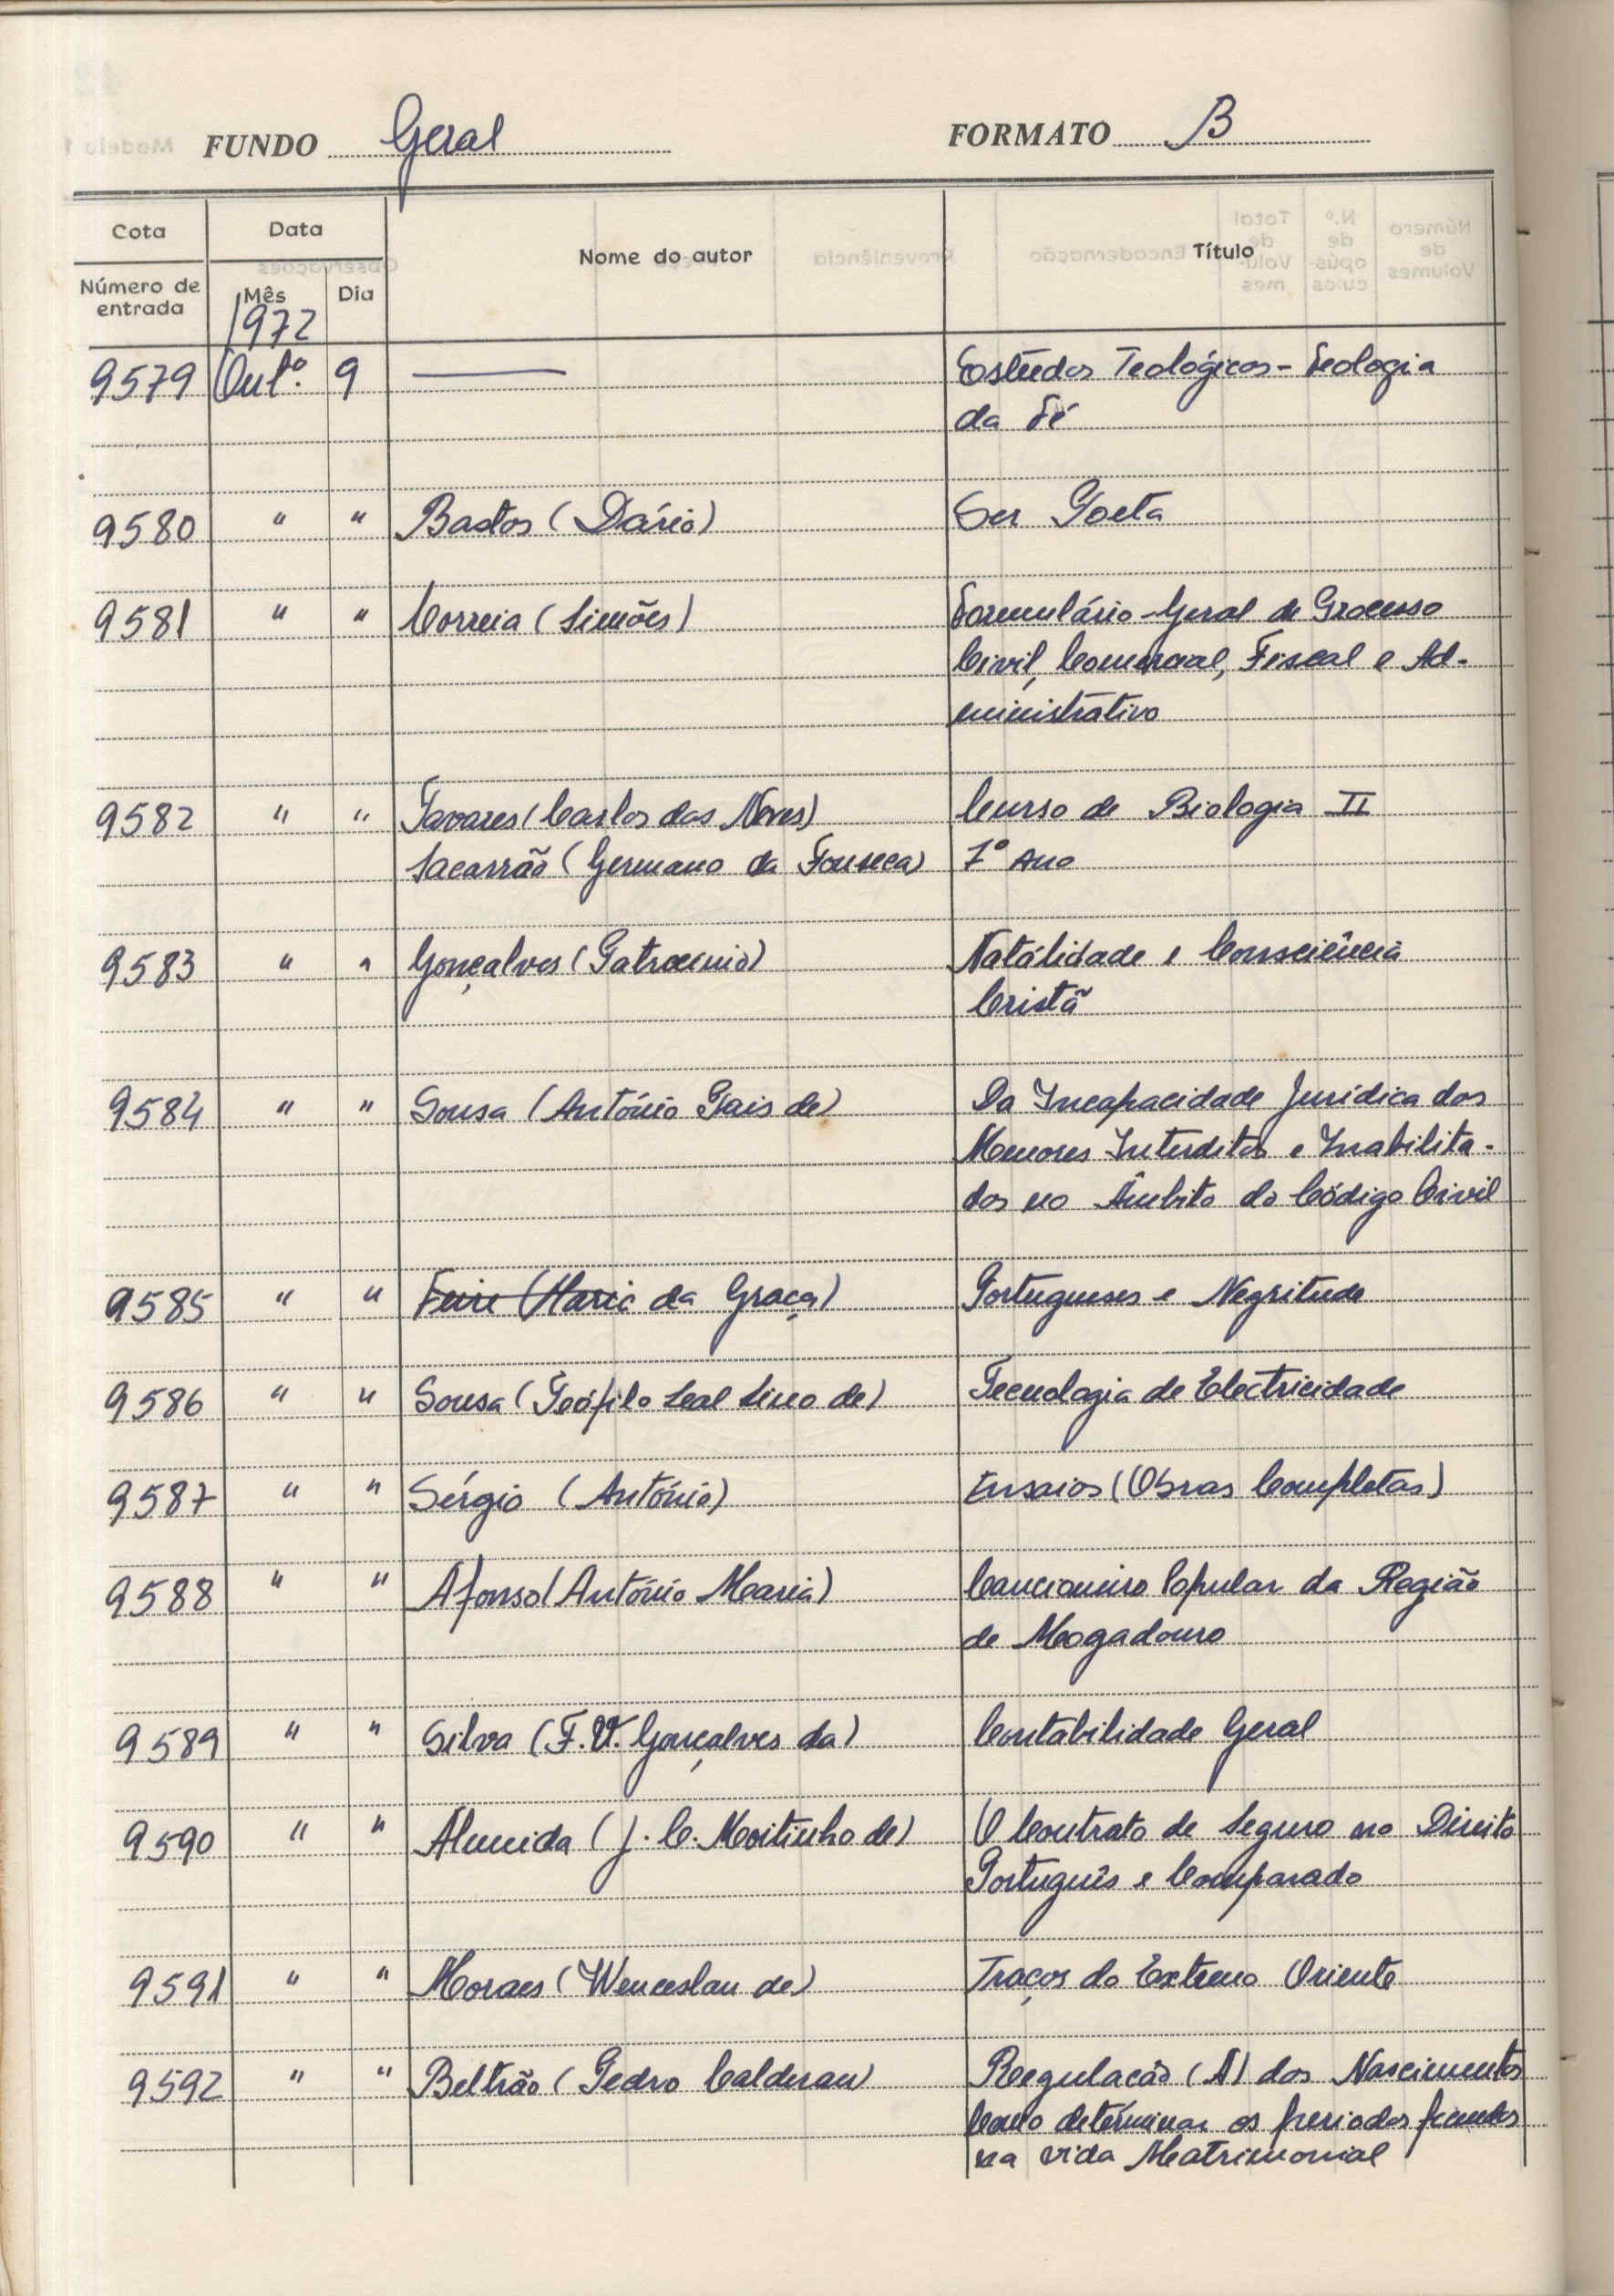 FUNDO Geral FORMATO B
Cota Data Nome do autor Título
Número de entrada Mês Dia
1972
9579 Outº. 9 —— Estudos Teológicos - Teologia
da Fé
9580 " " Bastos (Dário) Ser Poeta
9581 " " Correia (Simões) Formulário-Geral de Processo
Civil, Comercial, Fiscal e Ad-
ministrativo
9582 " " Tavares (Carlos das Neves) Curso de Biologia II
Sacarrão (Germano da Fonseca) 7º Ano
9583 " " Gonçalves (Patrocinio) Natálidade e Consciência
Cristã
9584 " " Sousa (António Pais de) Da Incapacidade Jurídica dos
Menores Interditos e Inabilita-
dos no Âmbito do Código Civil
9585 " " Feire (Maria da Graça) Portugueses e Negritude
9586 " " Sousa (Teófilo Leal Lino de) Tecnologia de Electricidade
9587 " " Sérgio (António) Ensaios (Obras Completas)
9588 " " Afonso (António Maria) Cancioneiro Popular da Região
de Mogadouro
9589 " " Silva (F. V. Gonçalves da) Contabilidade Geral
9590 " " Almeida (J. C. Moitinho de) O Contrato de Seguro no Direito
Português e Comparado
9591 " " Moraes (Wenceslau de) Traços do Extremo Oriente
9592 " " Beltrão (Pedro Calderan) Regulação (A) dos Nascimentos
Como detérminar os periodos fecundos
na vida Matrimonial